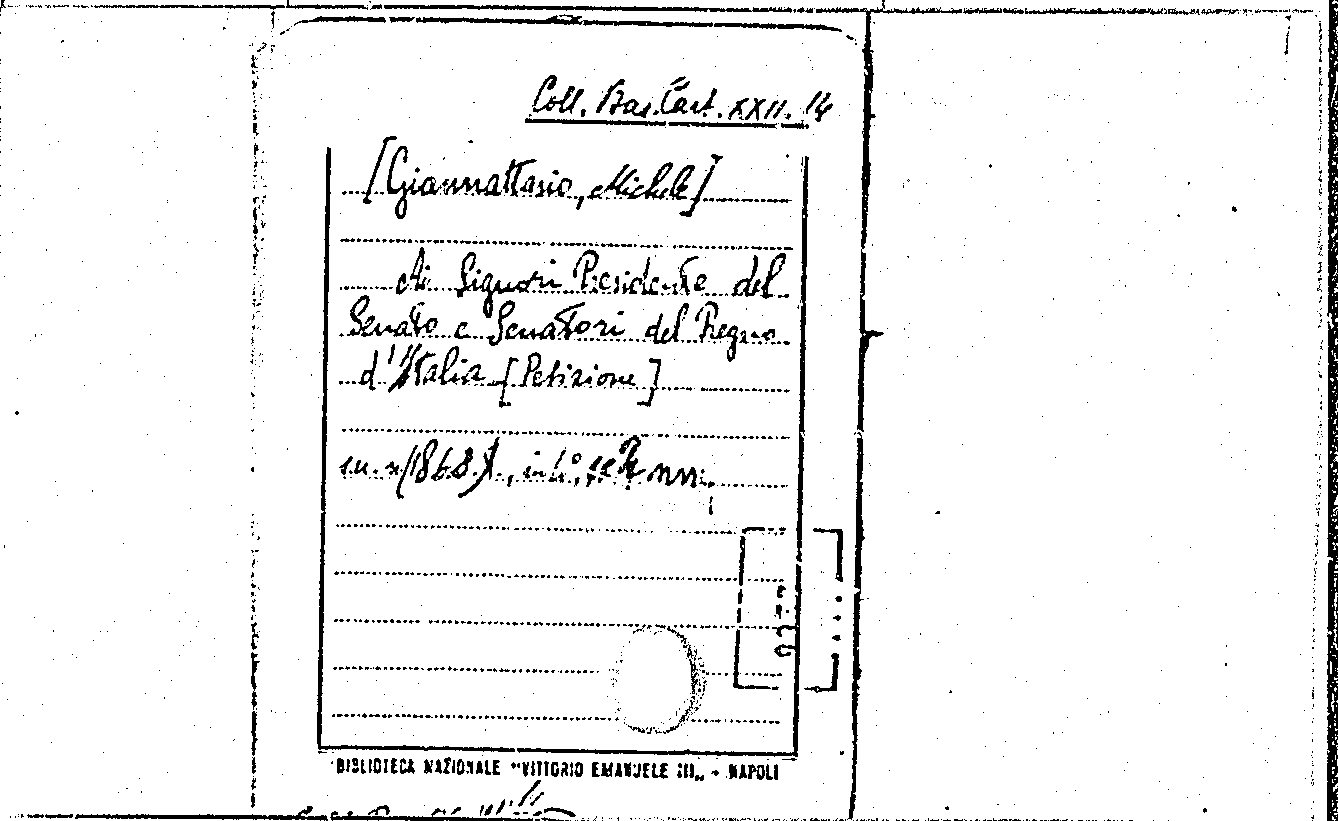 Coll. Bas. Cart. XXII. 14
[Giannattasio, Michele]
Ai Signori Presidente del
Senato e Senatori del Regno
d'Italia [Petizione]
(1868), in 4°,
BIBLIOTECA NAZIONALE "VITTORIO EMANUELE III„ - NAPOLI